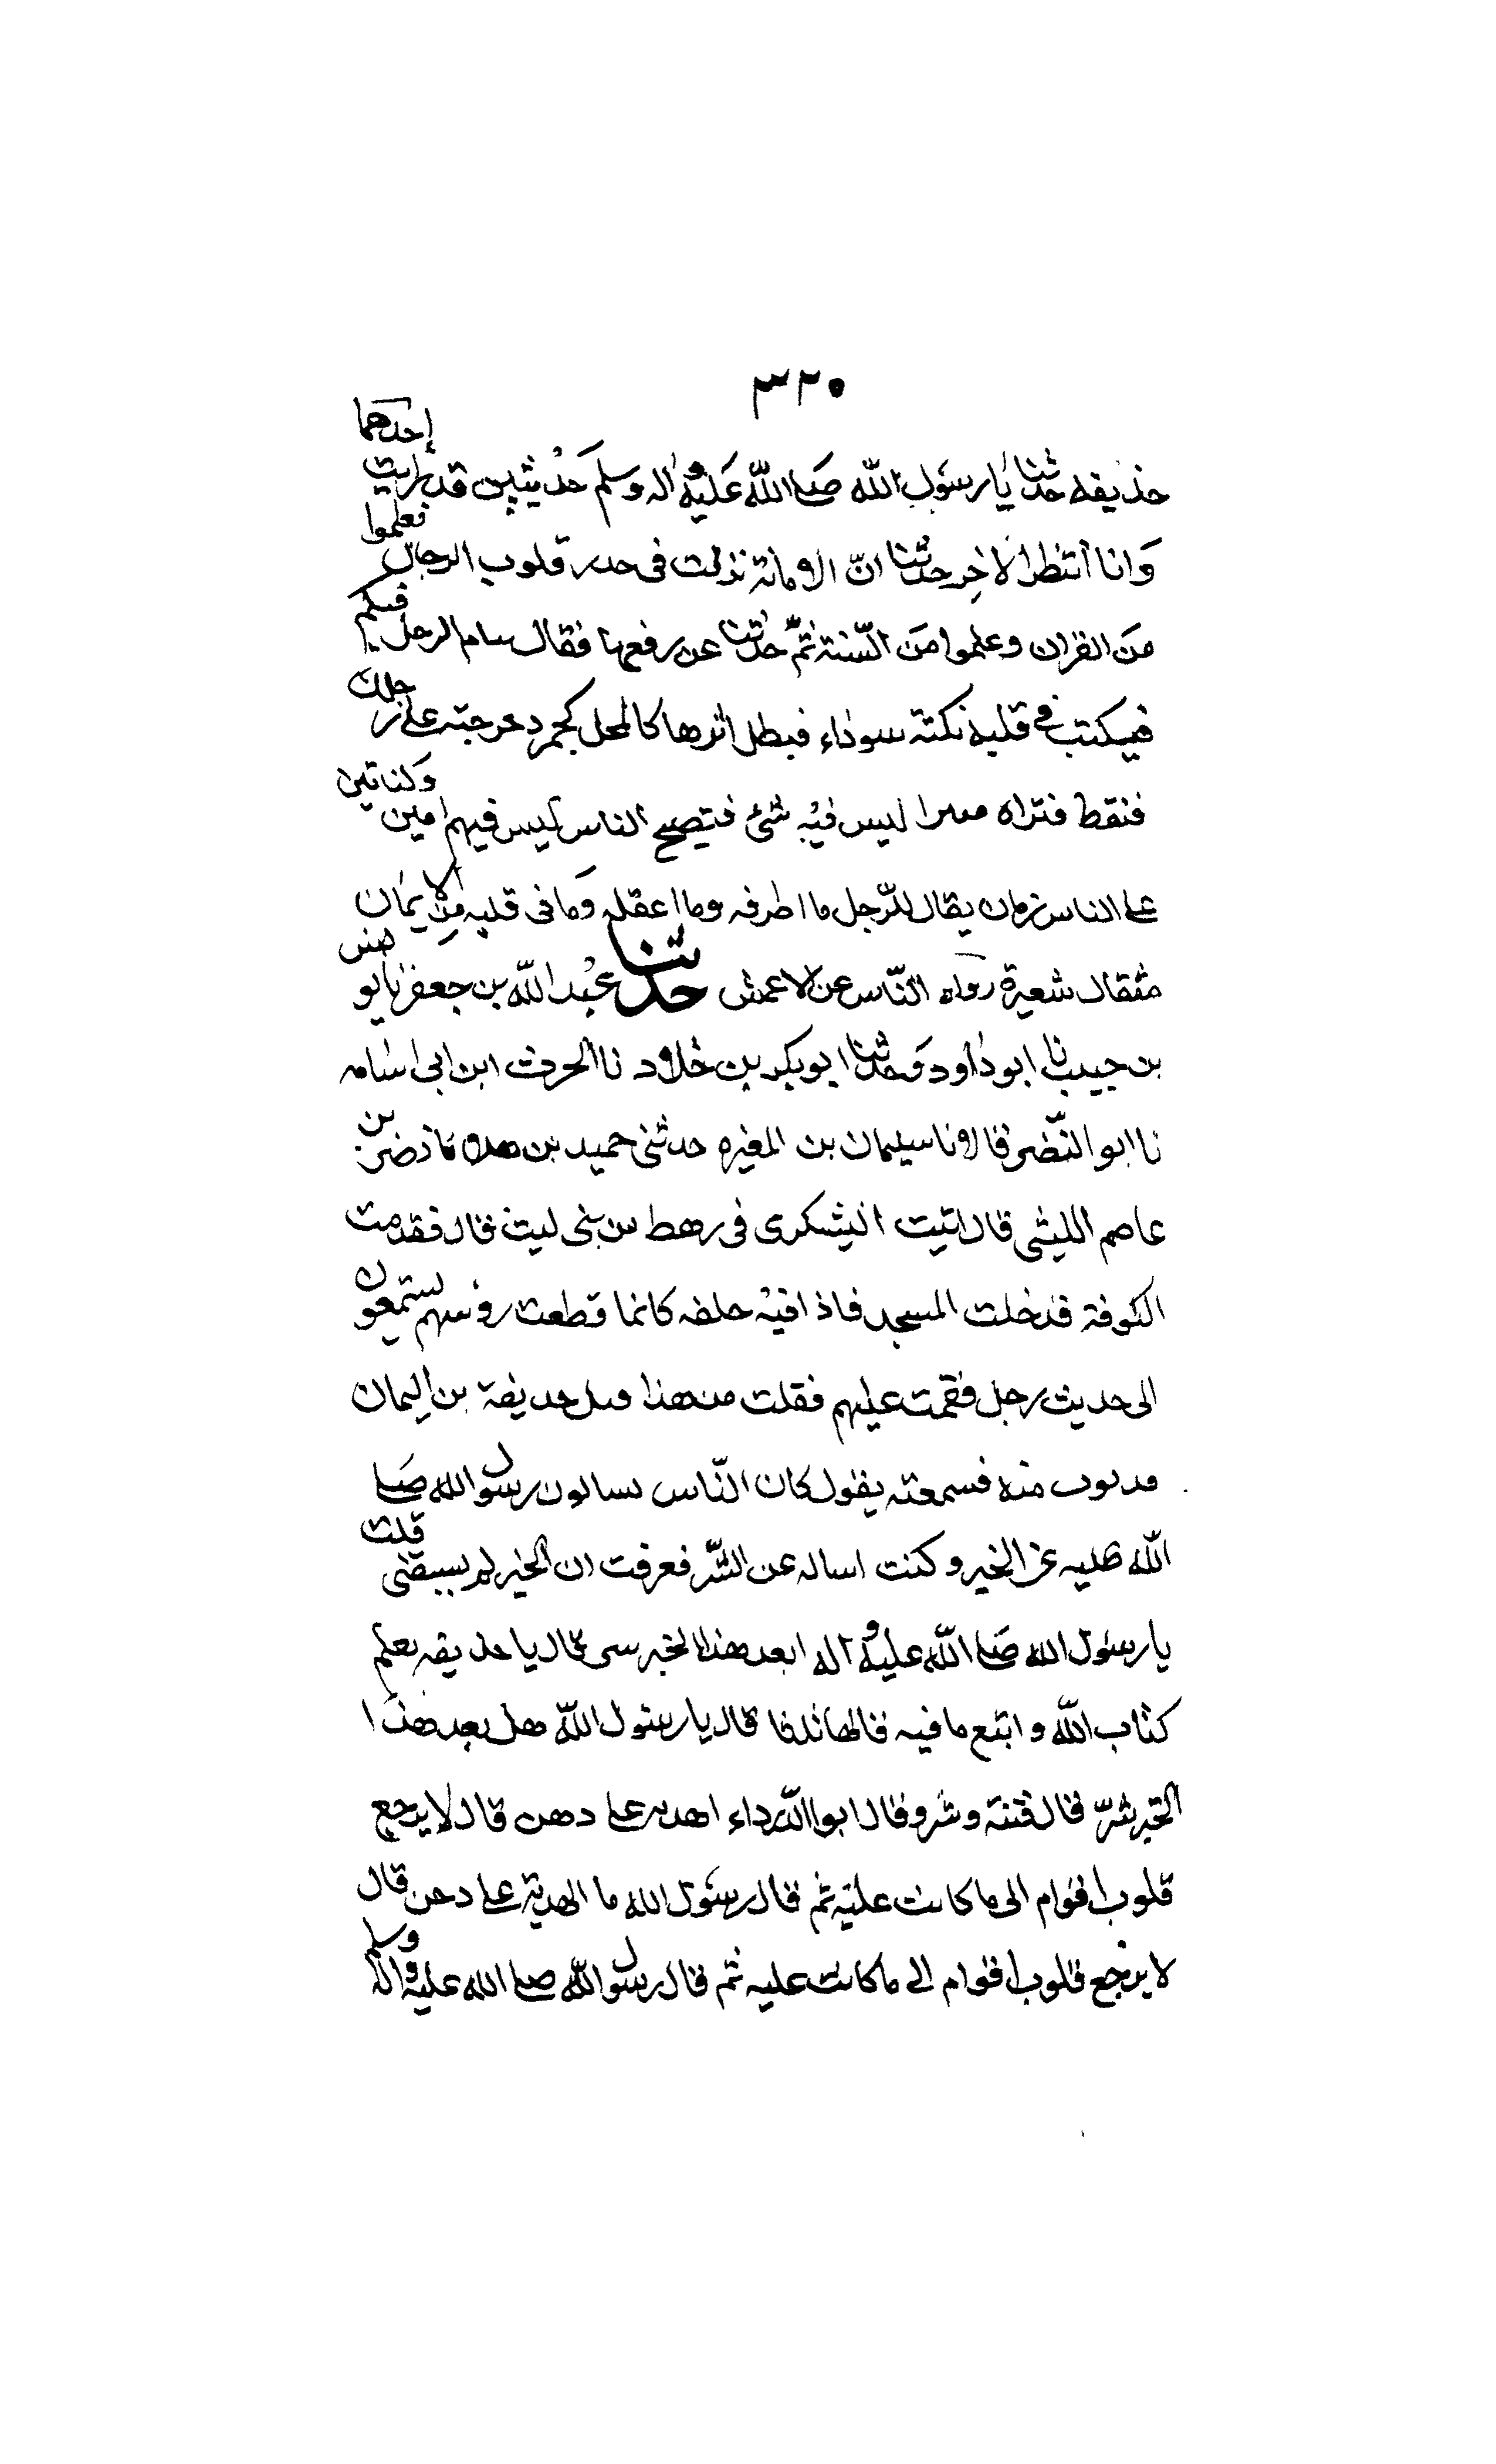 ٣٢٠
حذيفه حدثنا يا رسول الله صلى الله عليه واله وسلم حديثين قد رايت إحدهما
وانا أنتظر الاخر حدثنا ان الامانة نزلت فى جدر قلوب الرجال فعلموا
من القران وعلموا من السنة ثم حدثنا عن رفعها فقال ينام الرجل فيكم
فيكتب فى قلبه نكتة سوداء فيظل اثرها كالمجل كجمر دحرجته على رجلك
فنقط فتراه ليس فيه شئ فتصبح الناس ليس فيهم امين وكناتين
على الناس زمان يقال للرجل ما اطرفه وما اعقله وما فى قلبه من الايمان
مثقال شعيرة رواه الناس عن الاعمش حدثنا عبد الله بن جعفر نا يونس
بن حبيب نا ابو داود وحدثنا ابو بكر بن خلاد نا الحرث ابن ابى اسامه
نا ابو النضر قالا نا سليمان بن المغيره حدثنى حميد بن هلال نا نضر بن
عاصم الليثى قال اتيت اليشكرى فى رهط من بنى ليث قال فقدمت
الكوفة فدخلت المسجد فاذا فيه حلقه كانما قطعت رؤسهم يستمعون
الى حديث رجل فقمت عليهم فقلت من هذا قيل حذيفة بن اليمان
فدنوت منه فسمعته يقول كان الناس يسالون رسول الله صلى
الله عليه عن الخير وكنت اساله عن الشر فعرفت ان الخير لم يسبقنى قلت
يا رسول الله صلى الله عليه واله ابعد هذا الخير شر قال يا حذيفه تعلم
كتاب الله واتبع ما فيه قالها ثلاثا قال يا رسول الله هل بعد هذا
الخير شر قال فتنة وشر وقال ابو الدرداء هدنه على دخن قال لا يرجع
قلوب اقوام الى ما كانت عليه ثم قال رسول الله ما الهدية على دخن قال
لا يرجع قلوب اقوام الى ما كانت عليه ثم قال رسول الله صلى الله عليه واله وسلم